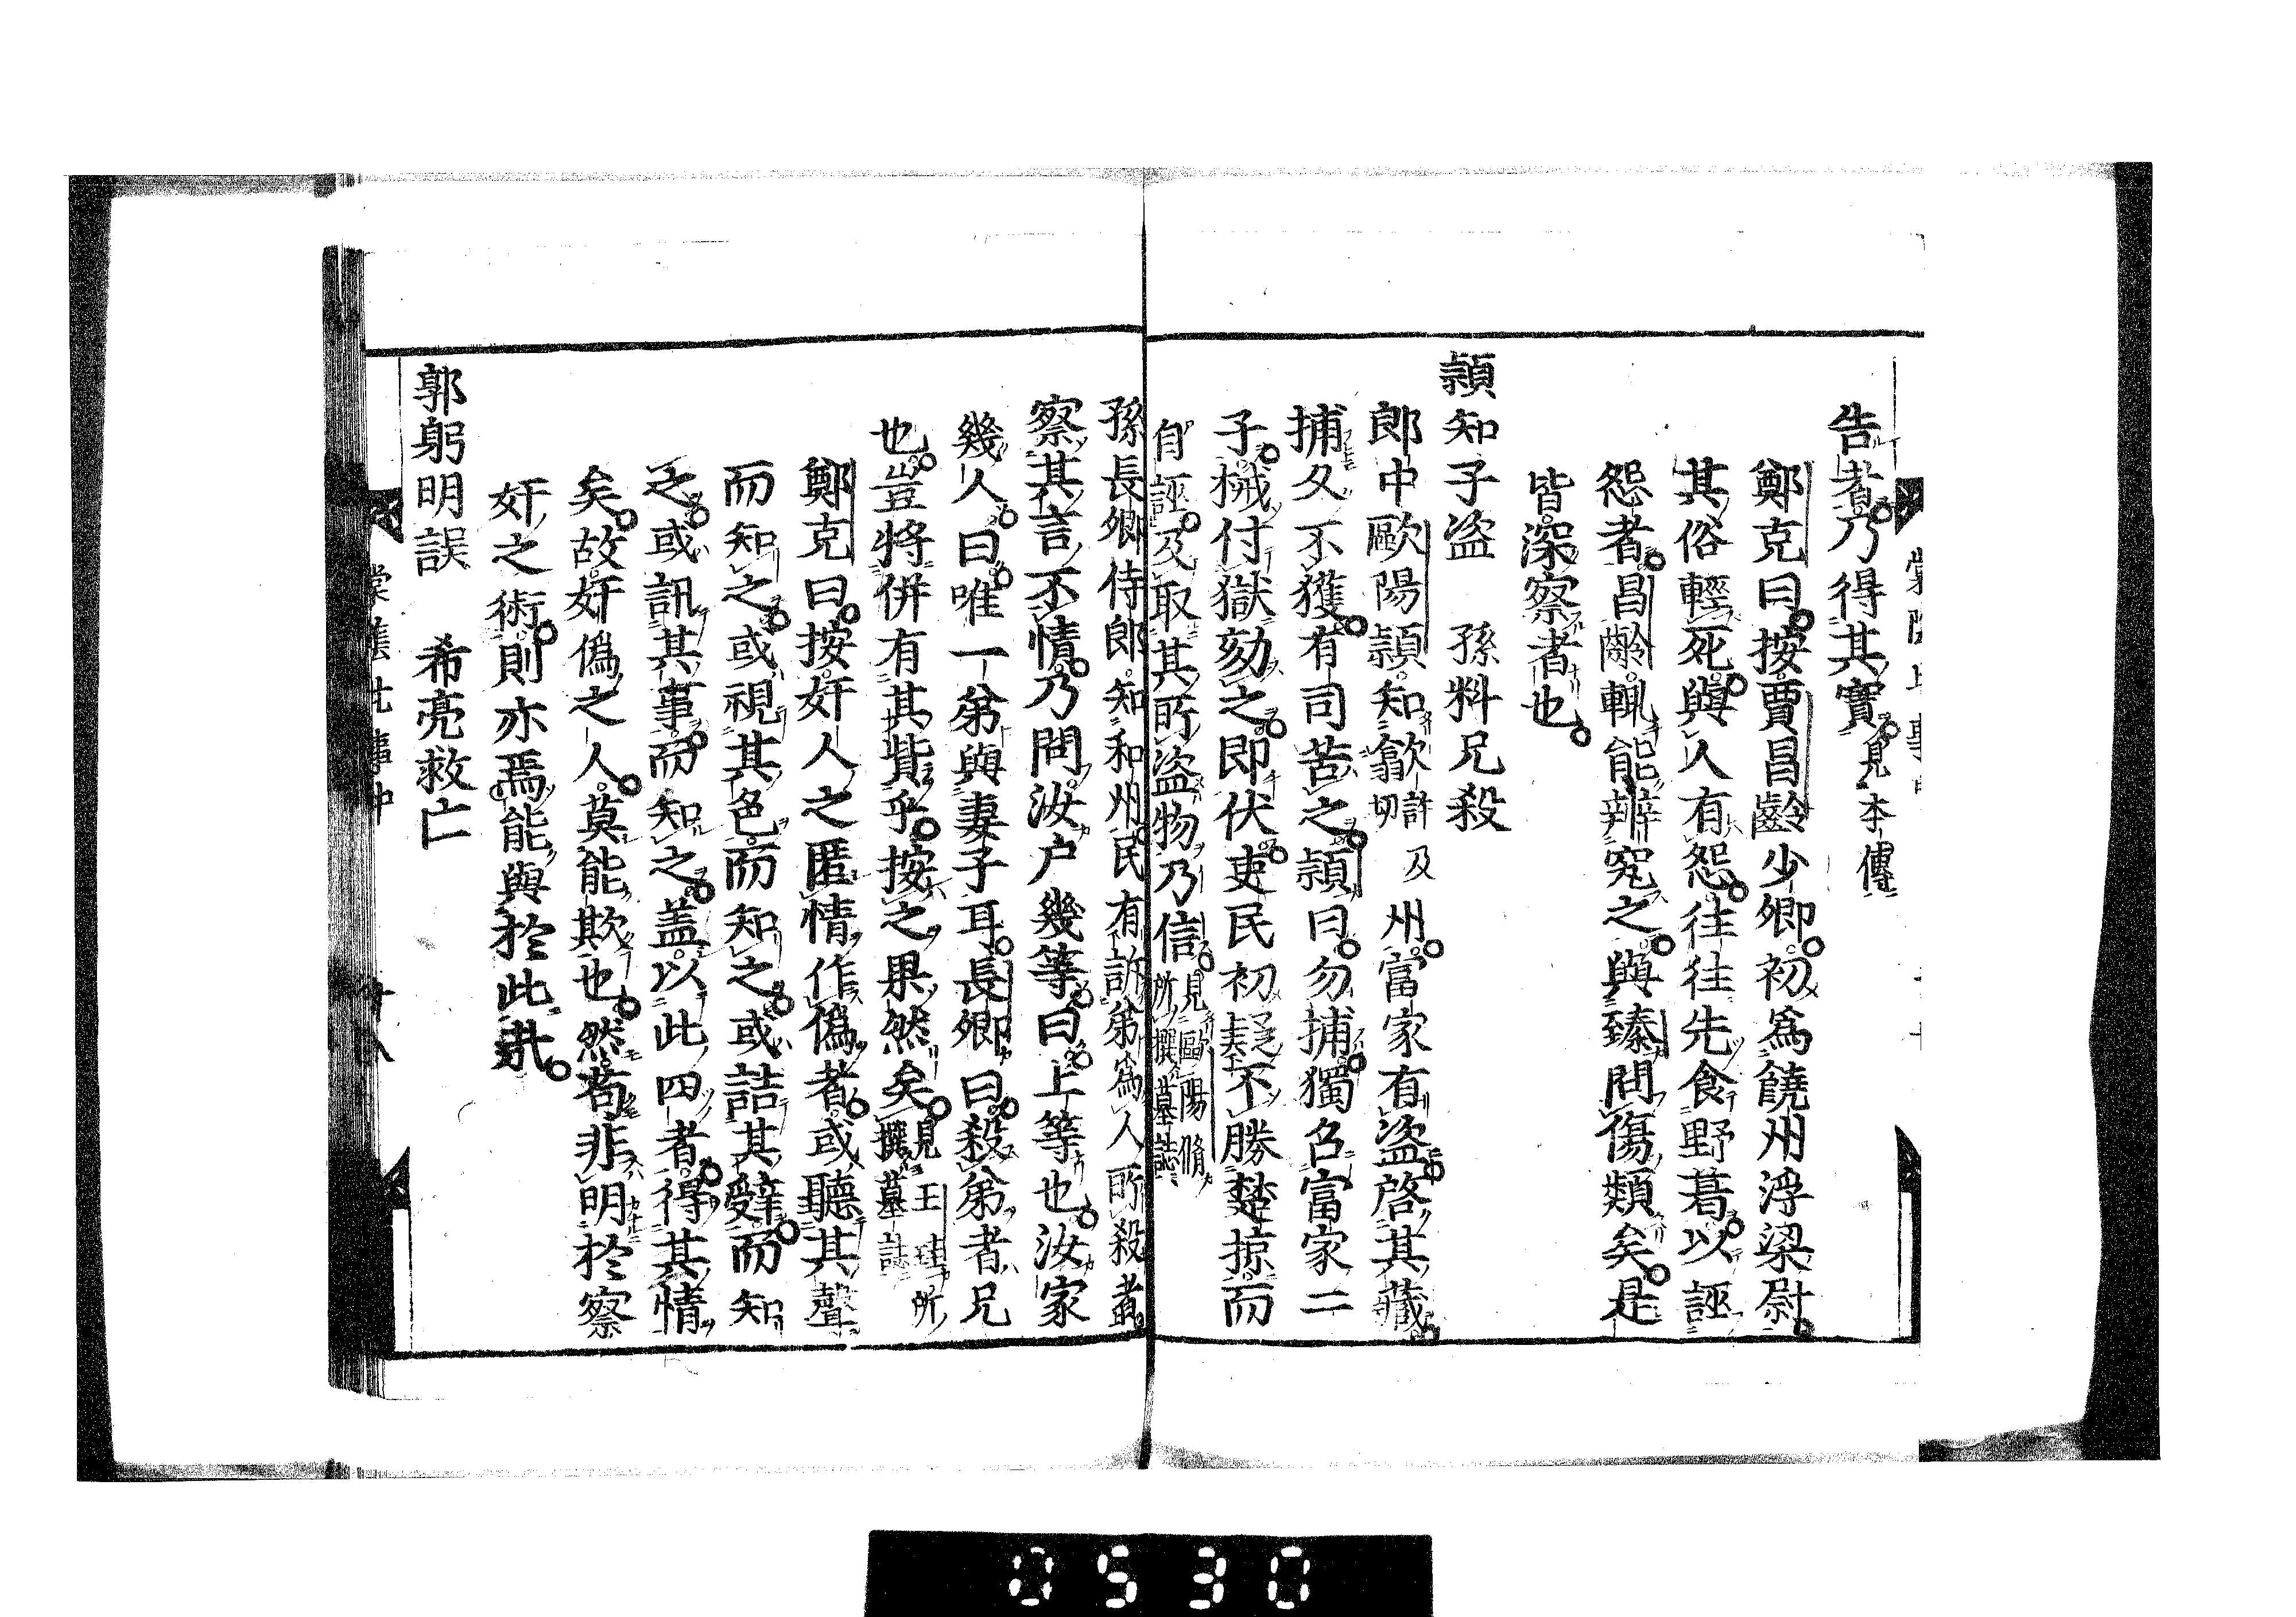 告者乃得其實見本傳
鄭克曰按賈昌齡少卿初為饒州浮梁尉
其俗輕死與人有怨往往先食野葛以誣
怨者昌齡輒能辨究之與臻問傷類矣是
皆深察者也
頴知子盗　孫料兄殺
郎中歐陽頴知歙許及切州富家有盗啓其藏
捕久不獲有司苦之頴曰勿捕獨召富家二
子械付獄劾之即伏吏民初疑不勝楚掠而
自誣及取其所盗物乃信見歐陽脩所撰墓誌
孫長卿侍郎知和州民有訴弟為人所殺者
察其言不情乃問汝户幾等曰上等也汝家
幾人曰唯一弟與妻子耳長卿曰殺弟者兄
也豈將併有其貲乎按之果然矣見王珪所撰墓誌
鄭克曰按奸人之匿情作偽者或聽其聲
而知之或視其色而知之或詰其辭而知
之或訊其事而知之盖以此四者得其情
矣故奸偽之人莫能欺也然苟非明於察
奸之術則亦焉能與於此哉
郭躬明誤　希亮救亡
0530